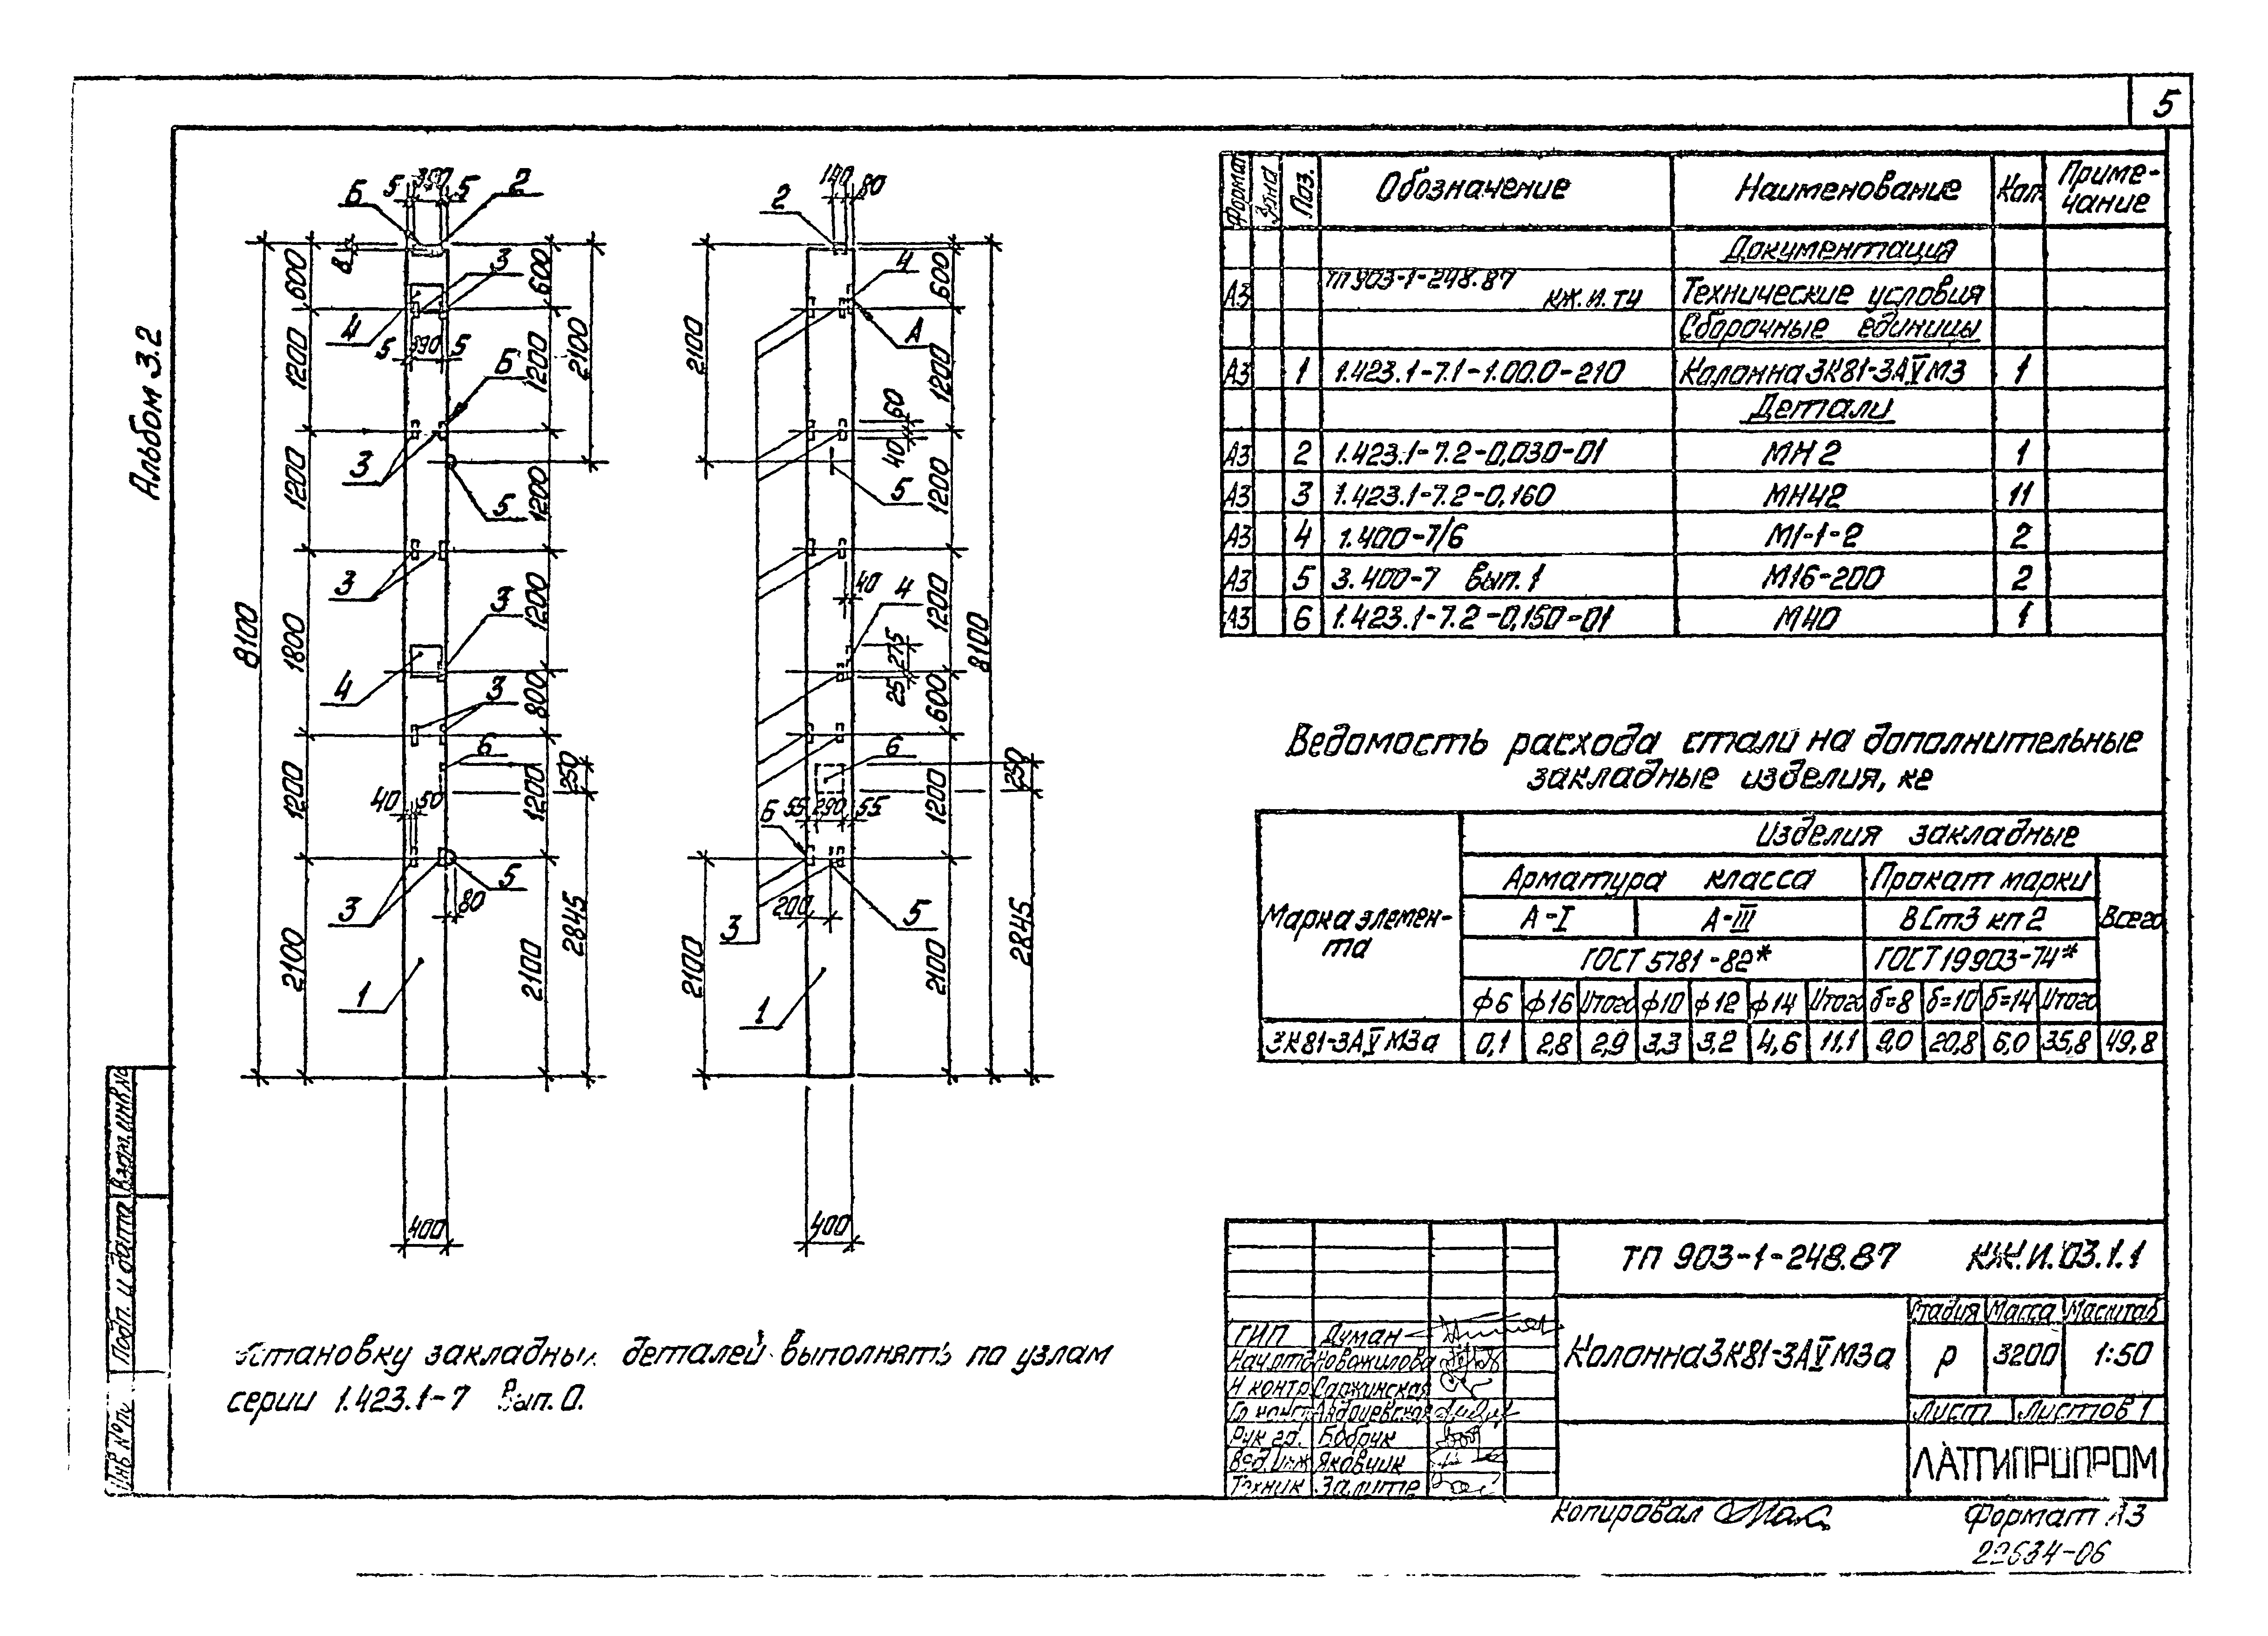 5
Альбом 3.2
5 390 5
Б 2
8
600 1200 1200 1800 1200 2100
8100
3
4
5 390 5
Б
3
5
3
3
4
3
6
40 50
3
5
80
1
600 1200 1200 1200 800 1200 2100
2100
250
2845
400
140 80
2
4
А
2100
60
40
5
40
4
275
25
6
55 290 55
Б
200
3
5
1
2100
600 1200 1200 1200 600 1200 2100
8100
250
2845
400
Формат Зона Поз. Обозначение Наименование Кол. Приме-
чание
Документация
А3 ТП 903-1-248.87 КЖ.И.ТУ Технические условия
Сборочные единицы
А3 1 1.423.1-7.1-1.00.0-210 Колонна 3К81-3АⅤМ3 1
Детали
А3 2 1.423.1-7.2-0,030-01 МН2 1
А3 3 1.423.1-7.2-0,160 МН42 11
А3 4 1.400-7/6 М1-1-2 2
А3 5 3.400-7 вып.1 М16-200 2
А3 6 1.423.1-7.2-0,150-01 М40 1
Ведомость расхода стали на дополнительные
закладные изделия, кг
Марка элемен-
та
Изделия закладные
Арматура класса Прокат марки Всего
А-I А-III ВСт3 кп2
ГОСТ 5781-82* ГОСТ 19903-74*
ф6 ф16 Итого ф10 ф12 ф14 Итого б=8 б=10 б=14 Итого
3К81-3АⅤМ3а 0,1 2,8 2,9 3,3 3,2 4,6 11,1 9,0 20,8 6,0 35,8 49,8
Установку закладных деталей выполнять по узлам
серии 1.423.1-7 Вып.0.
ТП 903-1-248.87 КЖ.И.03.1.1
Колонна 3К81-3АⅤМ3а
Стадия Масса Масштаб
Р 3200 1:50
Лист Листов 1
ЛАТГИПРОПРОМ
ГИП Думан
Нач.отд Новожилова
Н контр Саржинская
Гл. конст
Рук гр. Бобрик
Вед.инж Яковчик
Техник Залите
Копировал
Формат А3
22634-06
Инв № Подп. и дата Взам.инв.№